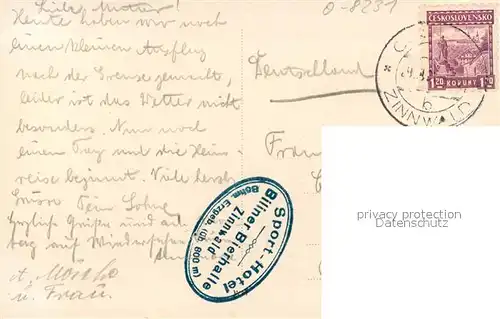 Liebe Mutter!
Heute haben wir noch
einen kleinen Ausflug
nach der Grenze gemacht,
leider ist das Wetter nicht
besonders. Nun noch
einen Tag und die Heim-
reise beginnt. Viele herzl.
Grüsse Dein Sohn
Herzliche Grüße und
auf Wiedersehen
u. Frau.
0-8231
Deutschland
Frau
ČESKOSLOVENSKO
1.20 KORUNY 1.20
ZINNWALD
Sport-Hotel
Biliner Bierhalle
Zinnwald
Böhm. Erzgeb. (üb. 800 m)
privacy protection
Datenschutz